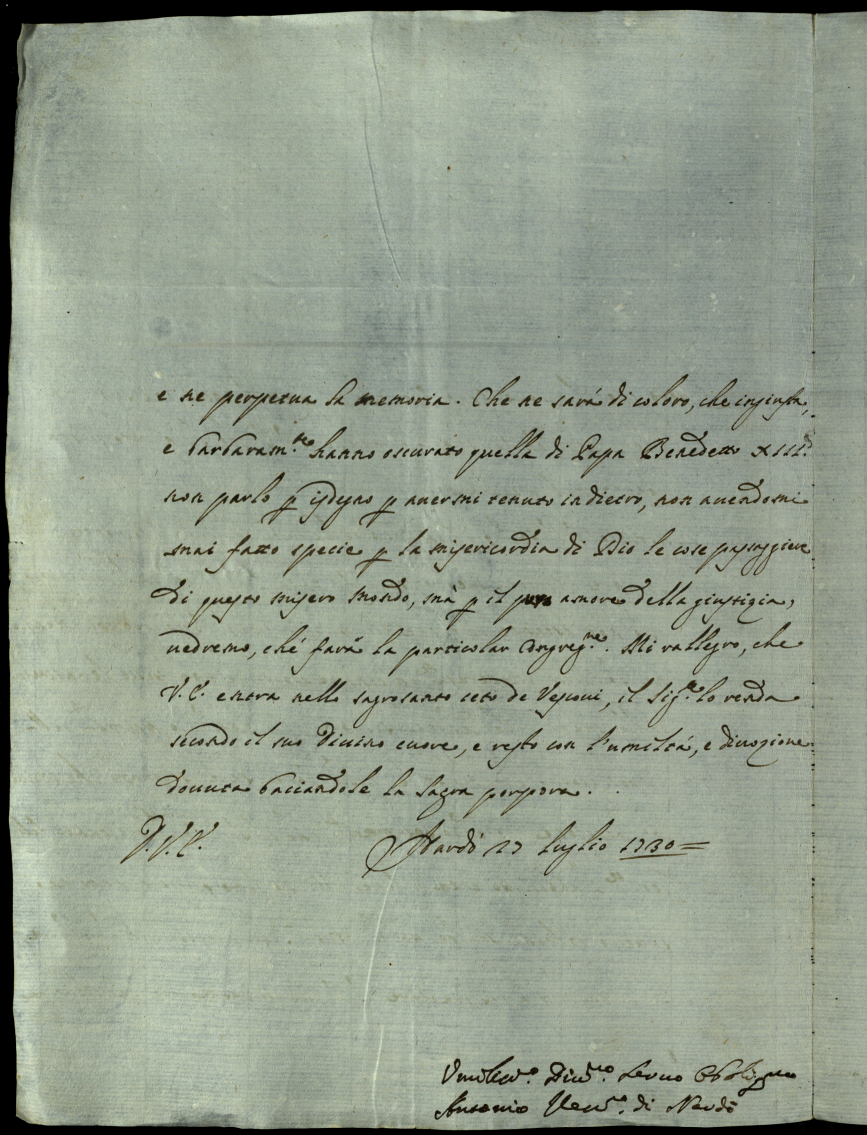 e ne perpetua la memoria. Che ne sarà di coloro, che ingiusta,
e barbaram.te hanno oscurato quella di Papa Benedetto XIII.
non parlo p isdegno p avermi tenuto indietro, non avendomi
mai fatto specie p la misericordia di Dio le cose passaggiere
di questo misero mondo, mà p il puro amore della giustizia,
vedremo, ché farà la particolar Congreg.ne. Mi rallegro, che
V.E. entra nello sagrosanto ceto de Vescovi, il Sig.re lo renda
secondo il suo Divino cuore, e resto con l'umiltà, e divozione
dovuta baciandole la sagra porpora.
D.V.E. Nardò 27 luglio 1730=
Umiliss.o Div.mo Servo
Antonio Vesc.o di Nardò